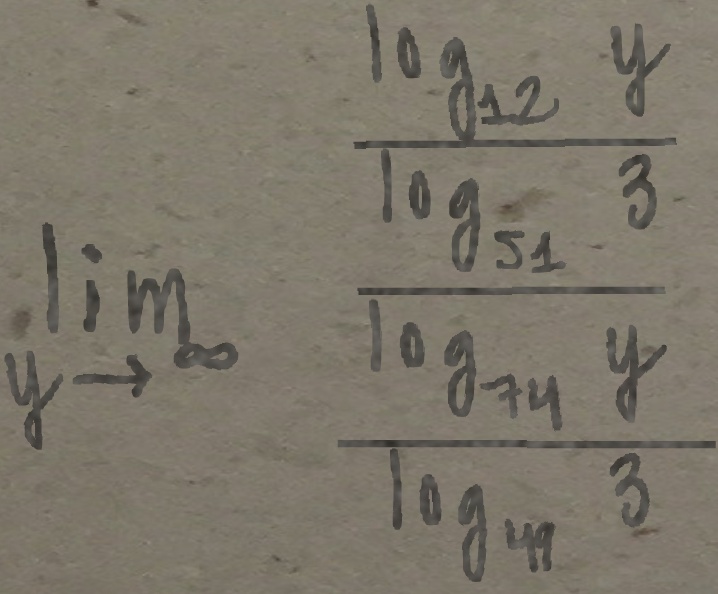 lim y→∞
log₁₂ y
log₅₁ 3
log₇₄ y
log₄₉ 3